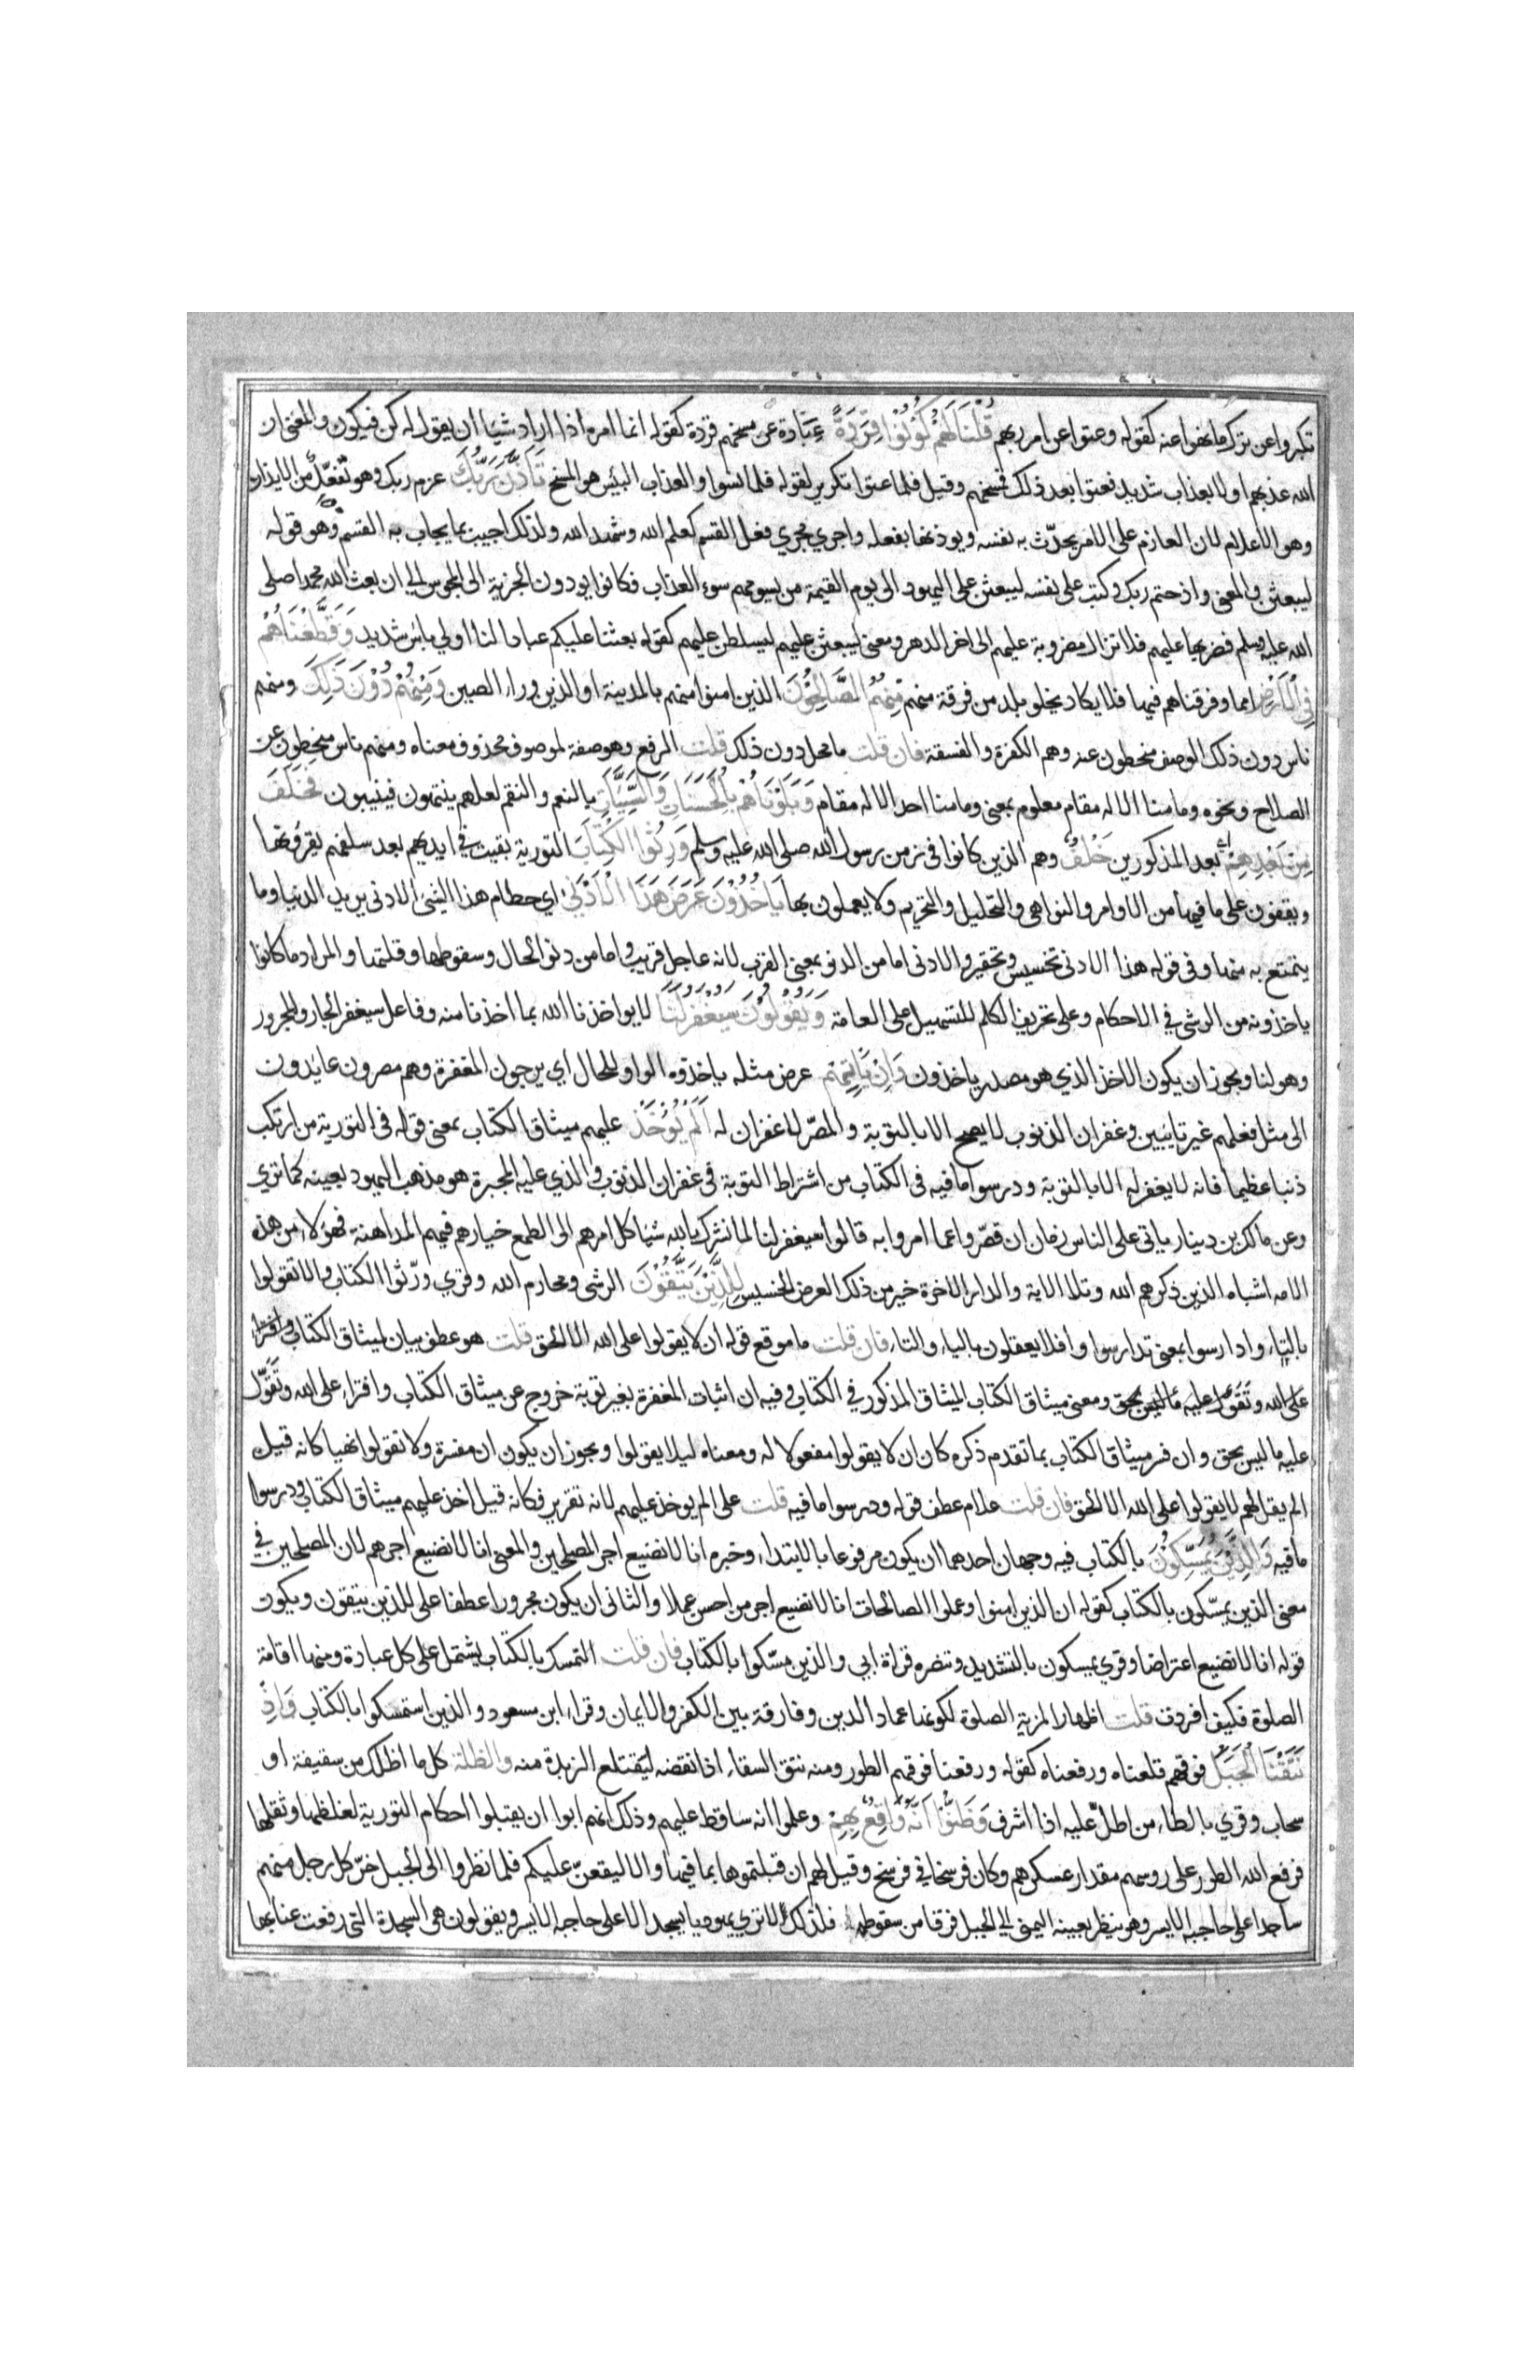 تكبروا عن ترك ما نهوا عنه كقوله وعتوا عن امر ربهم قُلْنَا لَهُمْ كُوْنُوْا قِرَدَةً عبارة عن مسخهم قردة كقوله انما امره اذا اراد شيا ان يقول له كن فيكون والمعنى ان
الله عذبهم اولا بعذاب شديد فعتوا بعد ذلك فمسخهم وقيل فلما عتوا تكرير لقوله فلما نسوا والعذاب البئيس هو المسخ تَاَذَّنَ رَبُّكَ عزم ربك وهو تفعّل من الايذان
وهو الاعلام لان العازم على الامر يحدّث به نفسه ويوذنها بفعله واجري مجري فعل القسم كعلم الله وشهد الله ولذلك اجيب بما يجاب به القسم وهو قوله
ليبعثن والمعنى واذ حتم ربك وكتب على نفسه ليبعثن على اليهود الى يوم القيمة من يسومهم سوء العذاب فكانوا يودون الجزية الى المجوس الى ان بعث الله محمدا صلى
الله عليه وسلم فضربها عليهم فلا تزال مضروبة عليهم الى اخر الدهر ومعنى ليبعثن عليهم ليسلطن عليهم كقوله بعثنا عليكم عبادا لنا اولي باس شديد وَقَطَّعْنَاهُمْ
فِي الْاَرْضِ امما وفرقناهم فيها فلا يكاد يخلو بلد من فرقة منهم مِنْهُمُ الصَّالِحُوْنَ الذين امنوا منهم بالمدينة او الذين وراء الصين وَمِنْهُمْ دُوْنَ ذَلِكَ ومنهم
ناس دون ذلك الوصف منحطون عنه وهم الكفرة والفسقة فان قلت ما محل دون ذلك قلت الرفع وهو صفة لموصوف محذوف معناه ومنهم ناس منحطون عن
الصلاح ونحوه وما منا الا له مقام معلوم بمعنى وما منا احد الا له مقام وَبَلَوْنَاهُمْ بِالْحَسَنَاتِ وَالسَّيِّئَاتِ بالنعم والنقم لعلهم ينتهون فينيبون فَخَلَفَ
مِنْ بَعْدِهِمْ بعد المذكورين خَلْفٌ وهم الذين كانوا في زمن رسول الله صلى الله عليه وسلم وَرِثُوا الْكِتَابَ التورية بقيت في ايديهم بعد سلفهم يقرؤنها
ويقفون على ما فيها من الاوامر والنواهي والتحليل والتحريم ولا يعملون بها يَاخُذُوْنَ عَرَضَ هَذَا الْاَدْنَى اي حطام هذا الشي الادنى يريد الدنيا وما
يتمتع به منها وفى قوله هذا الادنى تخسيس وتحقير والادنى اما من الدنو بمعنى القرب لانه عاجل قريب واما من دنو الحال وسقوطها وقلتها والمراد ما كانوا
ياخذونه من الرشى في الاحكام وعلى تحريف الكلم للتسهيل على العامة وَيَقُوْلُوْنَ سَيُغْفَرُ لَنَا لا يواخذنا الله بما اخذنا منه وفاعل سيغفر الجار والمجرور
وهو لنا ويجوز ان يكون الاخذ الذي هو مصدر ياخذون وَاِنْ يَاْتِهِمْ عرض مثله ياخذوه الواو للحال اي يرجون المغفرة وهم مصرون عايدون
الى مثل فعلهم غير تايبين وغفران الذنوب لا يصح الا بالتوبة والمصرّ لا غفران له اَلَمْ يُؤْخَذْ عليهم ميثاق الكتاب بمعنى قوله في التورية من ارتكب
ذنبا عظيما فانه لا يغفر له الا بالتوبة ودرسوا ما فيه في الكتاب من اشتراط التوبة في غفران الذنوب والذي عليه المجبرة هو مذهب اليهود بعينه كما تري
وعن مالك بن دينار ياتى على الناس زمان ان قصّروا عما امروا به قالوا سيغفر لنا لما نشرك بالله شيا كل امرهم الى الطمع خيارهم فيهم المداهنة فهولاء من هذه
الامه اشباه الذين ذكرهم الله وتلا الاية والدار الاخرة خير من ذلك العرض الخسيس لِلَّذِيْنَ يَتَّقُوْنَ الرشى ومحارم الله وقري ورّثوا الكتاب والا تقولوا
بالتاء وادارسوا بمعنى تدارسوا وافلا يعقلون بالياء والتاء فان قلت ما موقع قوله ان لا يقولوا على الله الا الحق قلت هو عطف بيان لميثاق الكتاب وافتراء
على الله وتقوّل عليه ما ليس بحق ومعنى ميثاق الكتاب الميثاق المذكور في الكتاب وفيه ان اثبات المغفرة بغير توبة خروج عن ميثاق الكتاب وافتراء على الله وتقوّل
عليه ما ليس بحق وان فسر ميثاق الكتاب بما تقدم ذكره كان ان لا يقولوا مفعولا له ومعناه ليلا يقولوا ويجوز ان يكون ان مفسرة ولا تقولوا نهيا كانه قيل
الم يقل لهم لا يقولوا على الله الا الحق فان قلت علام عطف قوله ودرسوا ما فيه قلت على الم يوخذ عليهم لانه تقرير فكانه قيل اخذ عليهم ميثاق الكتاب ودرسوا
ما فيه وَالَّذِيْنَ يُمَسِّكُوْنَ بالكتاب فيه وجهان احدهما ان يكون مرفوعا بالابتداء وخبره انا لا نضيع اجر المصلحين والمعنى انا لا نضيع اجرهم لان المصلحين في
معنى الذين يمسّكون بالكتاب كقوله ان الذين امنوا وعملوا الصالحات انا لا نضيع اجر من احسن عملا والثانى ان يكون مجرورا عطفا على للذين يتقون ويكون
قوله انا لا نضيع اعتراضا وقري يمسكون بالتشديد وتنصره قراة ابي والذين مسّكوا بالكتاب فان قلت التمسك بالكتاب يشتمل على كل عبادة ومنها اقامة
الصلوة فكيف افردت قلت اظهارا لمزية الصلوة لكونها عماد الدين وفارقة بين الكفر والايمان وقراء ابن مسعود والذين استمسكوا بالكتاب وَاِذْ
نَتَقْنَا الْجَبَلَ فوقهم قلعناه ورفعناه كقوله ورفعنا فوقهم الطور ومنه نتق السقاء اذا نفضه ليقتلع الزبدة منه والظلة كل ما اظلك من سقيفة او
سحاب وقري بالطاء من اطلّ عليه اذا اشرف وَظَنُّوْا اَنَّهُ وَاقِعٌ بِهِمْ وعلموا انه ساقط عليهم وذلك انهم ابوا ان يقبلوا احكام التورية لغلظها وثقلها
فرفع الله الطور على روسهم مقدار عسكرهم وكان فرسخا في فرسخ وقيل لهم ان قبلتموها بما فيها والا ليقعنّ عليكم فلما نظروا الى الجبل خرّ كل رجل منهم
ساجدا على حاجبه الايسر وهو ينظر بعينه اليمنى الى الجبل فرقا من سقوطه فلذلك لا تري يهوديا يسجد الا على حاجبه الايسر ويقولون هى السجدة التى رفعت عنا بها